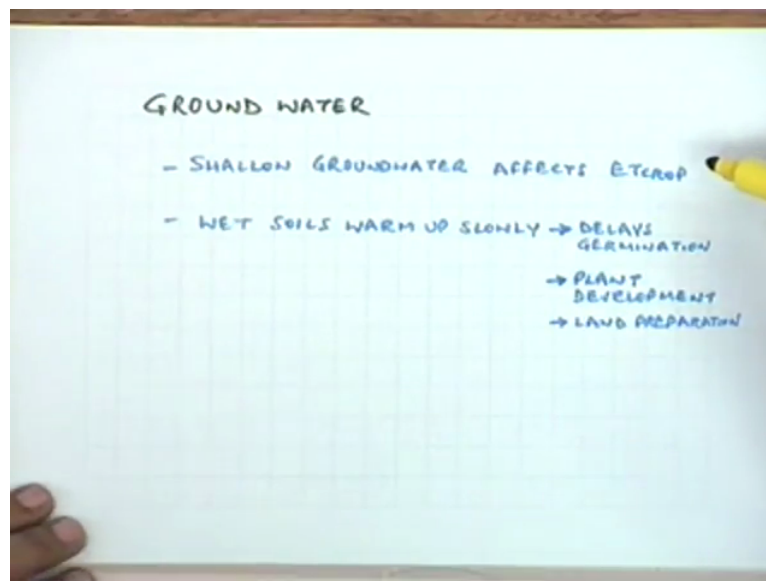 GROUND WATER
- SHALLOW GROUNDWATER AFFECTS ETCROP
- WET SOILS WARM UP SLOWLY → DELAYS
GERMINATION
→ PLANT
DEVELOPMENT
→ LAND PREPARATION